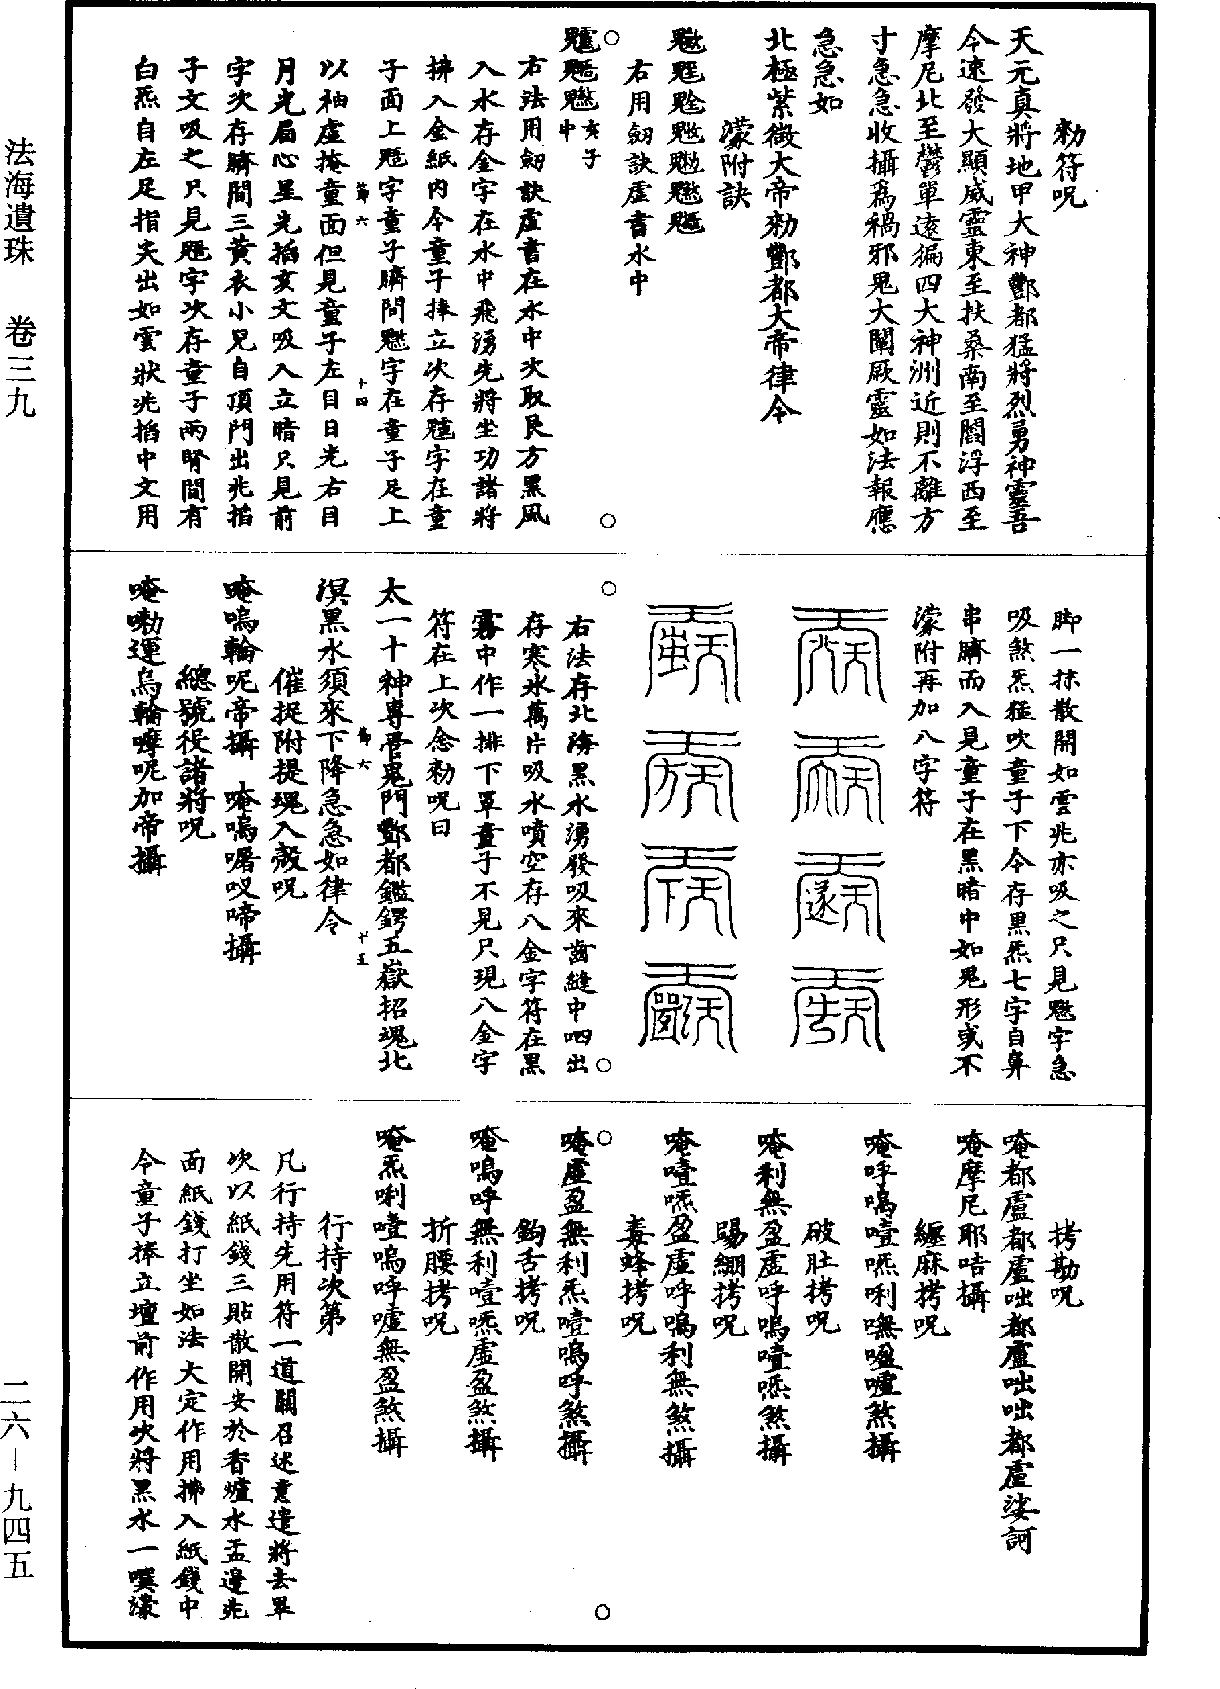 勑符呪
天元真將地甲大神酆都猛將烈勇神靈吾
今速發大顯威靈東至扶桑南至閻浮西至
摩尼北至鬱單遠徧四大神洲近則不離方
寸急急收攝為禍邪鬼大闡厥靈如法報應
急急如
北極紫微大帝勑酆都大帝律令
濛附訣
右用劒訣虛書水中
亥子
中
右法用劒訣虛書在水中次取艮方黑風
入水存金字在水中飛湧先將坐功諸將
拂入金紙内令童子捧立次存字在童
子面上字童子臍間字在童子足上
以袖虛掩童面但見童子左目日光右目
月光眉心星光掐亥文吸入立暗只見前
字次存臍間三黄衣小兒自頂門出兆掐
子文吸之只見字次存童子兩腎間有
白炁自左足指尖出如雲狀兆掐中文用
脚一抹散開如雲兆亦吸之只見字急
吸煞炁猛吹童子下令存黑炁七字自鼻
串臍而入見童子在黑暗中如鬼形或不
濛附再加八字符
右法存北海黑水湧發吸來齒縫中呬出
存寒冰萬片吸水噴空存八金字符在黑
霧中作一排下罩童子不見只現八金字
符在上次念勑呪曰
太一十神專管鬼門酆都鑑鍔五嶽招魂北
溟黑水須來下降急急如律令
催捉附提魂入殼呪
唵嗚輪呢帝攝　唵嗚囉㕚啼攝
總號役諸將呪
唵嘞運烏輪嚤呢加帝攝
拷勘呪
唵都盧都盧咄都盧咄咄都盧娑訶
唵摩尼耶咭攝
纏麻拷呪
唵呼嗚噎㗭唎嘸嗌嚧煞攝
破肚拷呪
唵利無盈虛呼嗚噎㗭煞攝
踢綳拷呪
唵噎㗭盈虛呼嗚利無煞攝
毒蜂拷呪
唵虛盈無利炁噎嗚呼煞攝
鈎舌拷呪
唵嗚呼無利噎㗭虛盈煞攝
折腰拷呪
唵炁唎噎嗚呼嘘無盈煞攝
行持次第
凡行持先用符一道關召述意遣將去畢
次以紙錢三貼散開安於香爐水盂邊兆
面紙錢打坐如法大定作用拂入紙錢中
令童子捧立壇前作用次將黑水一噀濛
第六
十四
第六
十五
法海遺珠　卷三九
二六－九四五